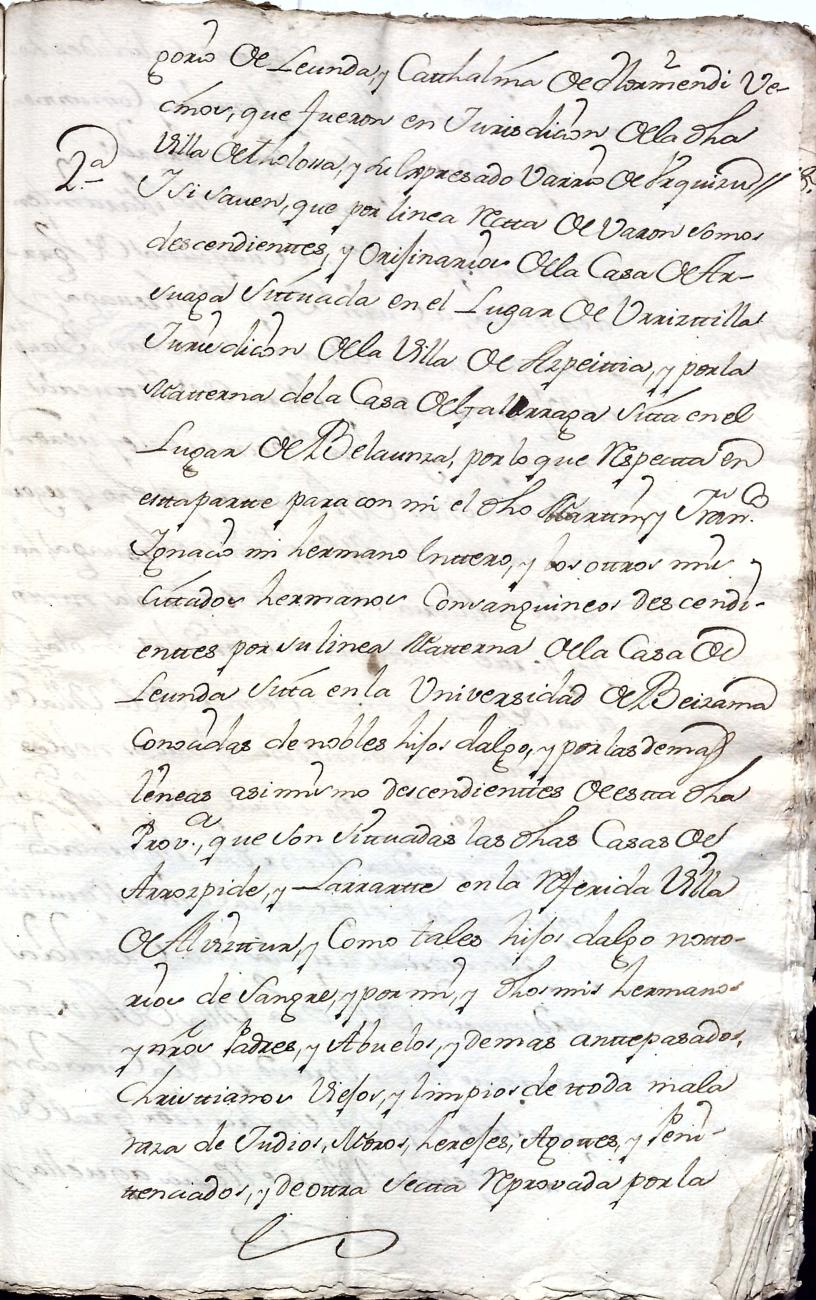 gorio de Leunda, y Cathalina de Hormendi Ve-
cinos, que fueron en Jurisdicion de la dha
Villa de tholossa, y su Expresado Varrio de Urquizu//
2.a Y si saven, que por linea Rectta de Varon somos
descendienttes, y Orijinarios de la Casa de Ar-
suaga Sittuada en el Lugar de Urristtilla
Jurisdicion de la Villa de Azpeittia, y por la
Matterna de la Casa de Galarraga Sitta en el
Lugar de Belaunza, por lo que Respectta en
estta partte para con mi el dho Marttin, y Fran.co
Ignacio mi hermano Enttero, y los ottros mis
Cittados hermanos Consanguineos descendi-
enttes por su linea Matterna de la Casa de
Leunda Sitta en la Universidad de Beizama
Conocidas de nobles hijos dalgo, y por las demas
lineas asi mismo descendienttes de estta dha
Prov.a, que son Sittuadas las dhas Casas de
Arrozpide, y Larrartte en la Referida Villa
de Alvisttur, y Como tales hijos dalgo notto-
rios de Sangre, y por mi, y dhos mis hermanos
y nros Padres, y Abuelos, y demas anttepasados,
Christtianos Viejos, y limpios de ttoda mala
raza de Judios, Moros, herejes, Agottes, y Peni-
ttenciados, y de ottra Sectta Reprovada por la